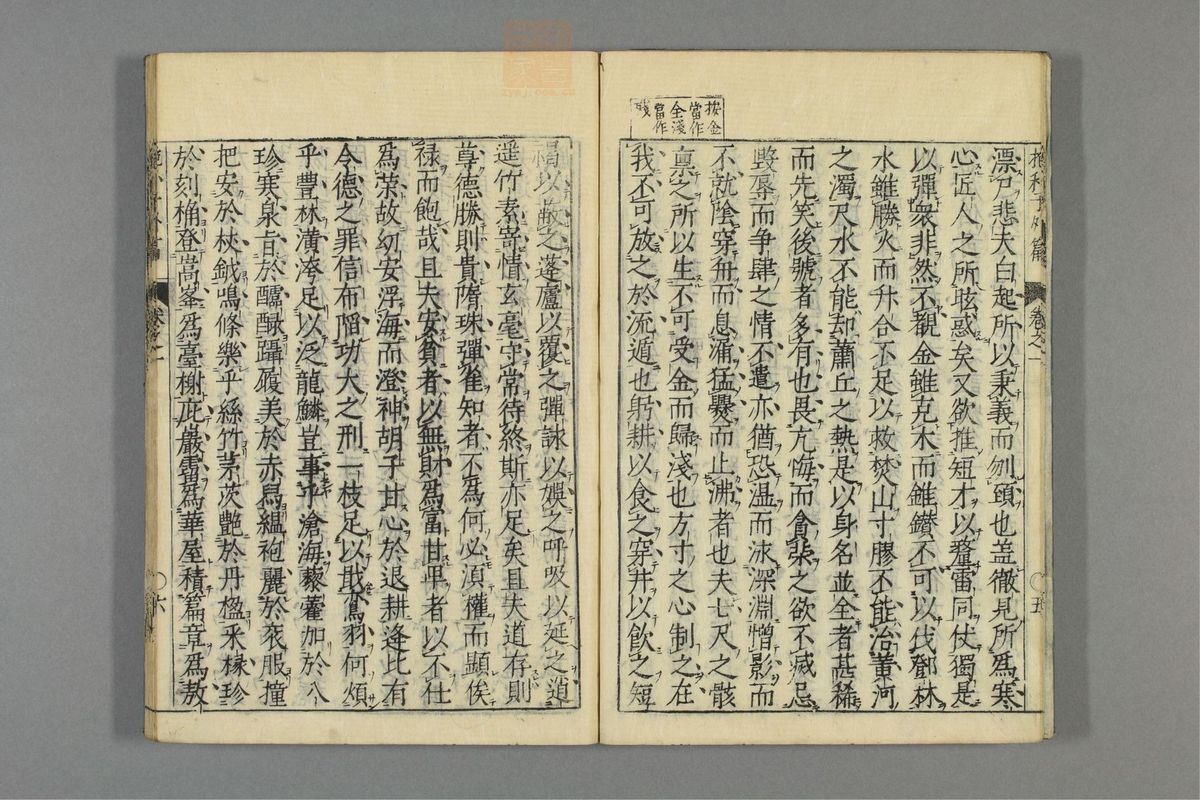 抱朴子外篇
卷之一
〇五
按金
當作
全淺
當作
殘
漂尸悲夫白起所以秉義而刎頸也盖徹見所爲寒
心匠人之所眩惑矣又欲推短才以釐雷同仗獨是
以彈衆非然不覩金雖克木而錐鑚不可以伐鄧林
水雖勝火而升合不足以救焚山寸膠不能治黄河
之濁尺水不能却蕭丘之熱是以身名並全者甚稀
而先笑後號者多有也畏亢悔而貪柒之欲不滅忌
毀辱而争肆之情不遣亦猶恐温而泳深淵憎影而
不就陰穿舟而息漏猛爨而止沸者也夫七尺之骸
稟之所以生不可受金而歸淺也方寸之心制之在
我不可放之於流遁也躬耕以食之穿井以飲之短
褐以蔽之蓬廬以覆之彈詠以娯之呼吸以延之逍
遥竹素寄情玄毫守常待終斯亦足矣且夫道存則
尊德勝則貴隋珠彈雀知者不爲何必湏權而顯俟
禄而飽哉且夫安貧者以無財爲富甘卑者以不仕
爲荣故幼安浮海而澄神胡子甘心於退耕逄比有
令德之罪信布陷功大之刑一枝足以戢鸞羽何煩
乎豐林潢洿足以泛龍鱗豈事乎滄海藜藿加於八
珍寒泉旨於醽醁躡履美於赤舄緼袍麗於衮服撞
把安於杖鉞鳴條樂乎絲竹茅茨艷於丹楹釆椽珍
於刻桷登嵩峯爲臺榭庇巖霤爲華屋積篇章爲敖
卷之一
〇六